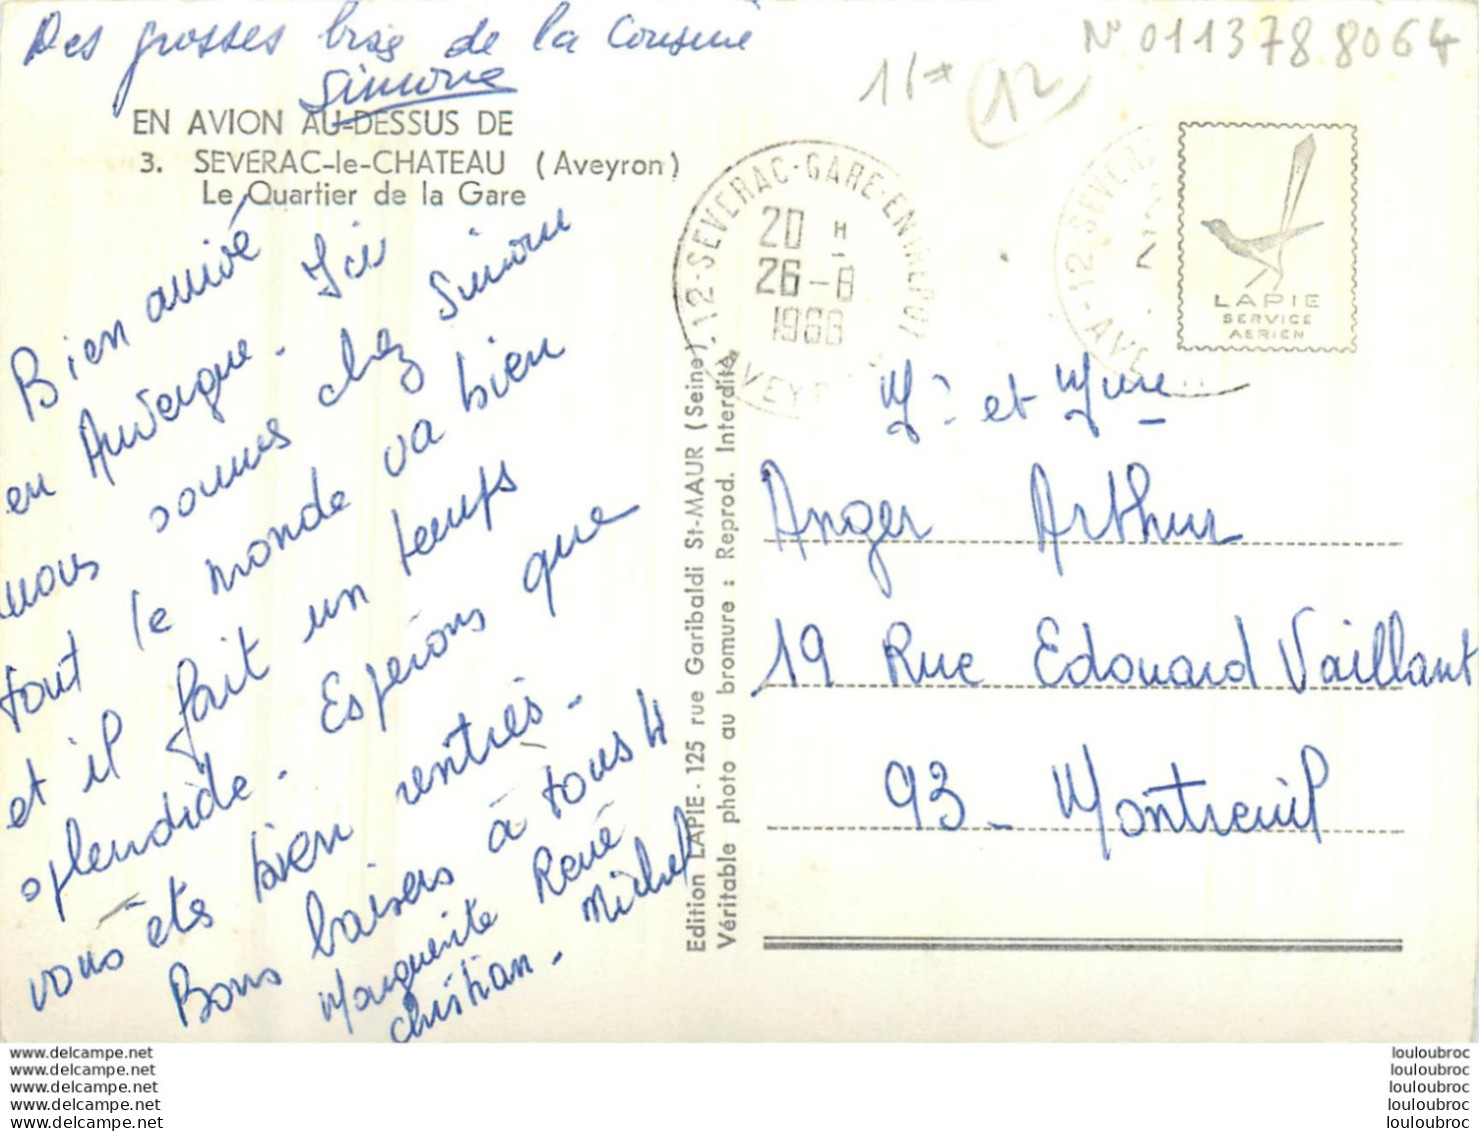 Des grosses bise de la Cousine
Simone
N° 0113788064
16*
12
EN AVION AU-DESSUS DE
3. SEVERAC-le-CHATEAU (Aveyron)
Le Quartier de la Gare
Bien arrivé
en Auvergne. Ici
nous sommes chez Simone
tout le monde va bien
et il fait un temps
splendide. Espérons que
vous êts bien rentrés.
Bons baisers à tous 4
Marguerite René
Christian - Michel
12-SEVERAC-GARE-ENTREPOT
20 H
26-8
AVEYRON
12-SEVERA
AVE
LAPIE
SERVICE
AERIEN
Edition LAPIE - 125 rue Garibaldi St-MAUR (Seine)
Véritable photo au bromure : Reprod. Interdite
Mr et Mme
Anger Arthur
19 Rue Edouard Vaillant
93 - Montreuil
www.delcampe.net
www.delcampe.net
www.delcampe.net
www.delcampe.net
www.delcampe.net
louloubroc
louloubroc
louloubroc
louloubroc
louloubroc